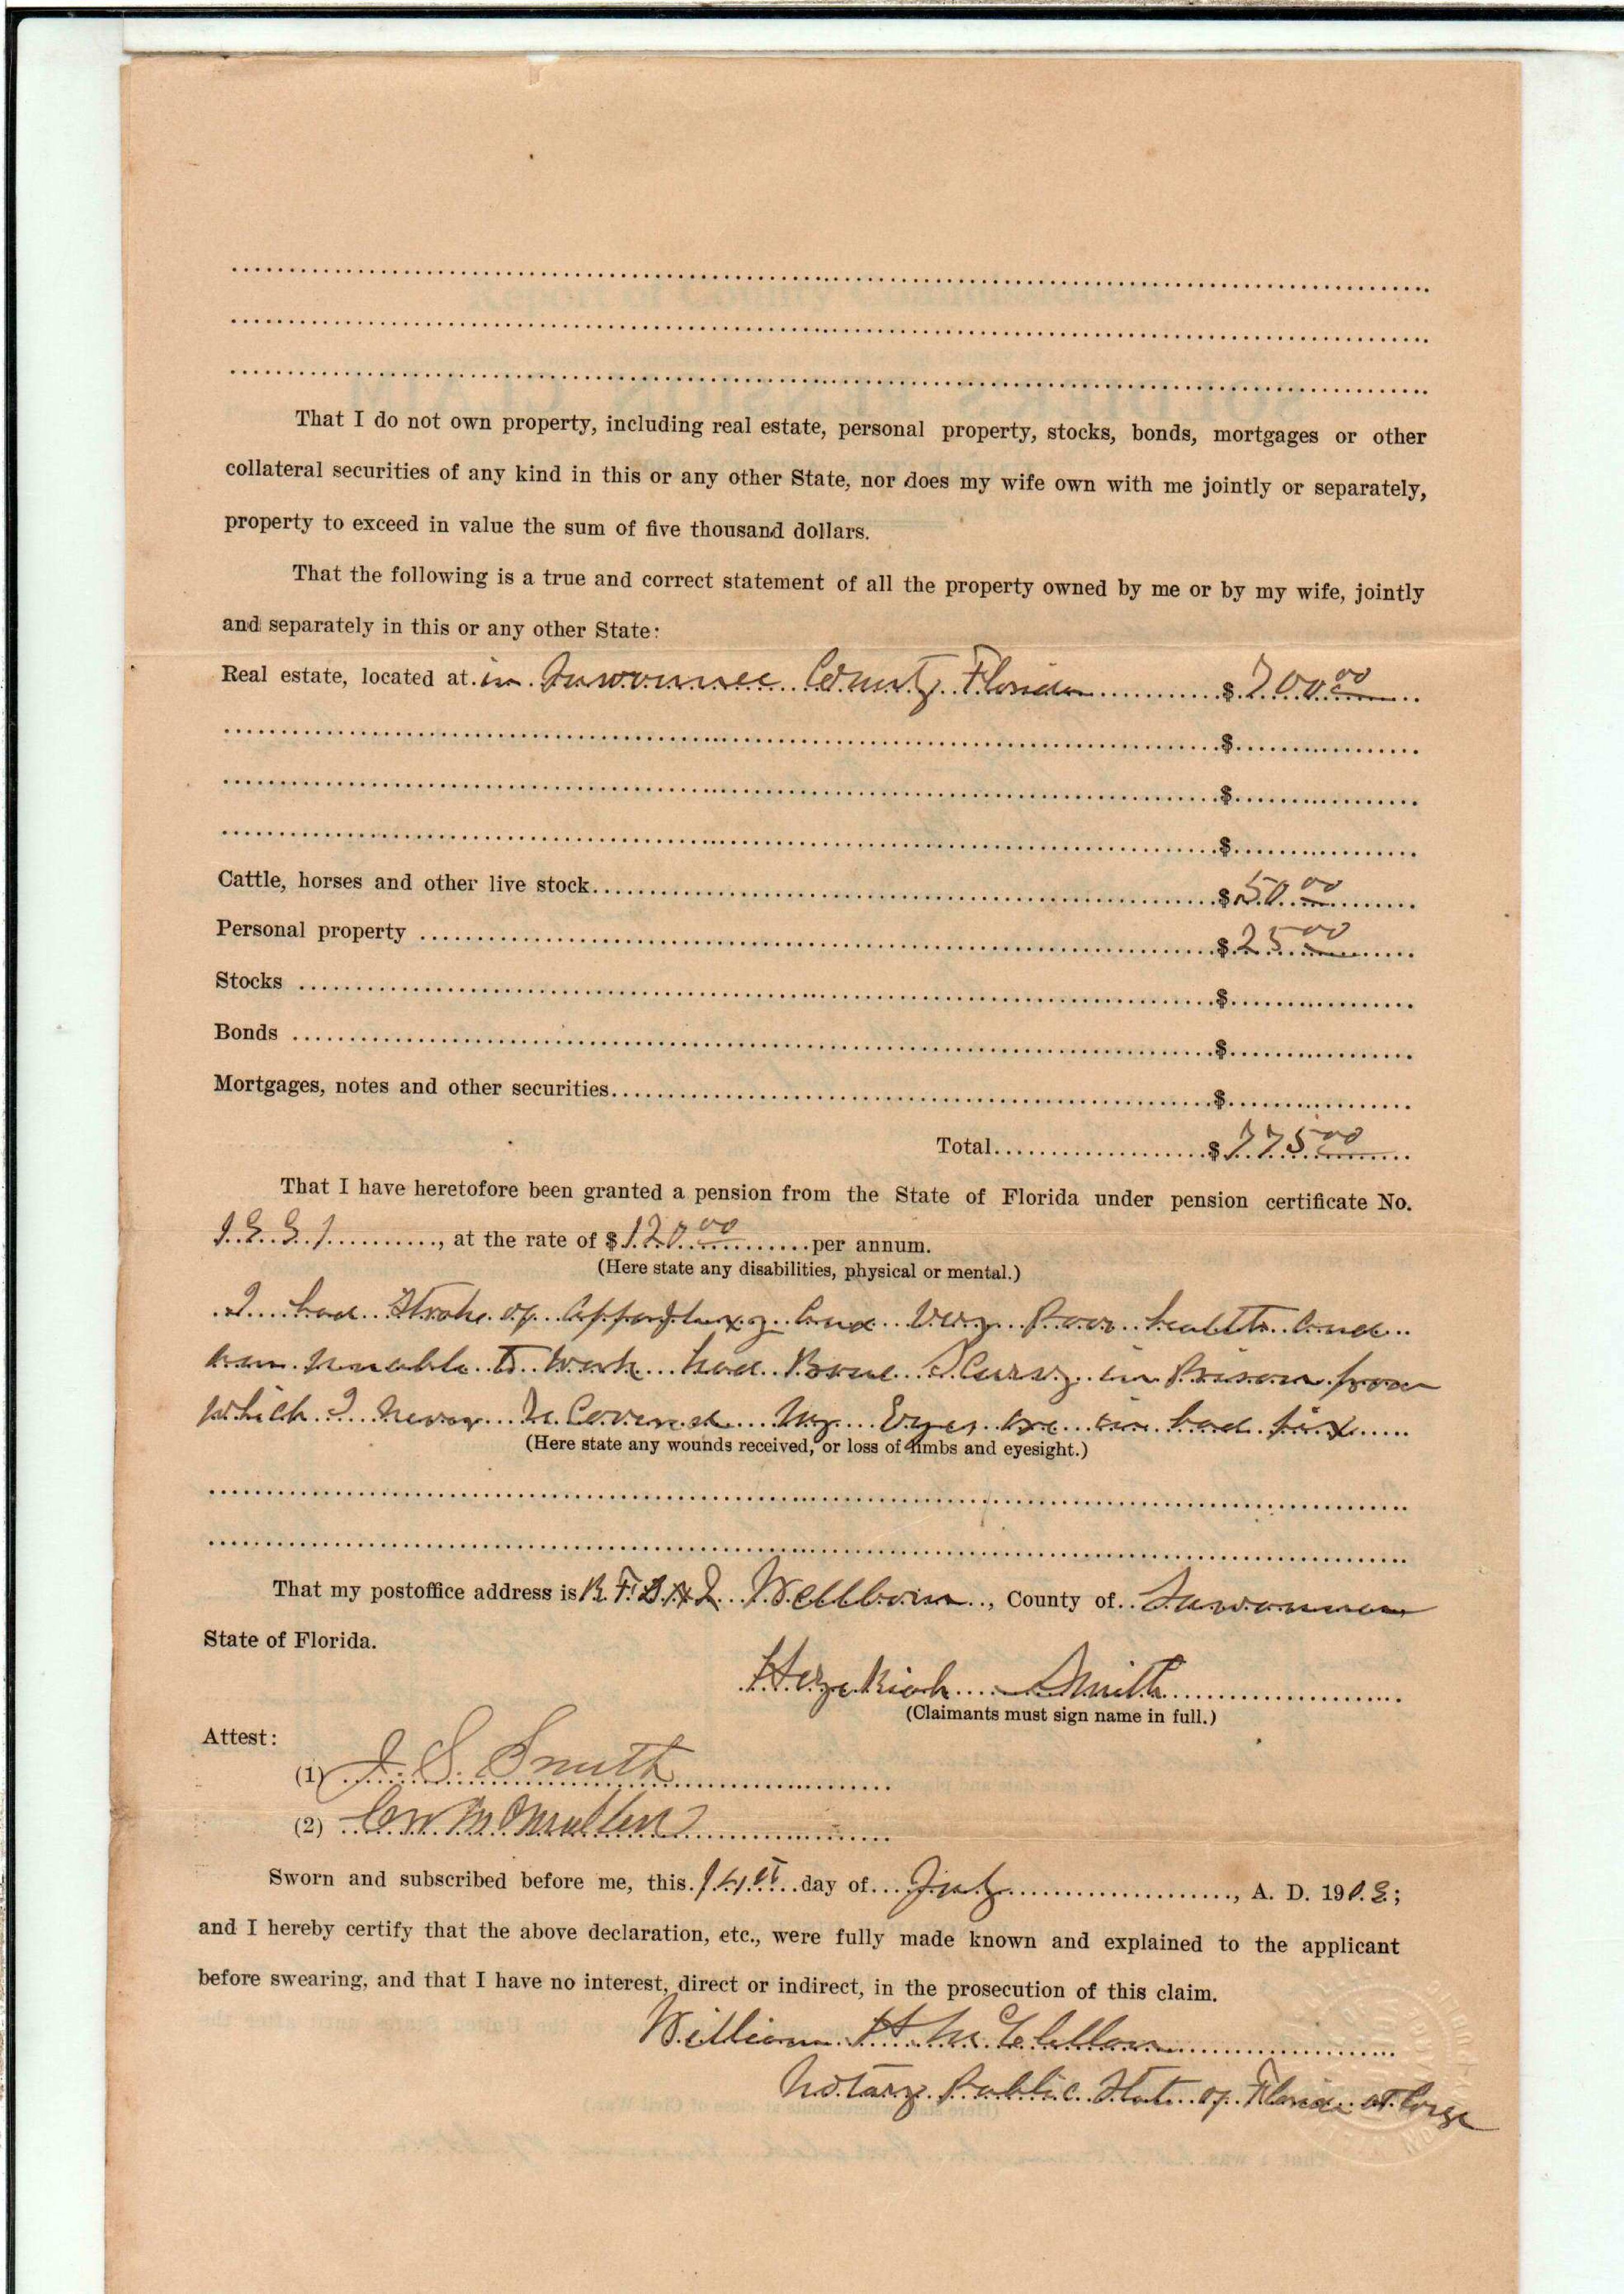 That I do not own property, including real estate, personal property, stocks, bonds, mortgages or other
collateral securities of any kind in this or any other State, nor does my wife own with me jointly or separately,
property to exceed in value the sum of five thousand dollars.
That the following is a true and correct statement of all the property owned by me or by my wife, jointly
and separately in this or any other State:
Real estate, located at in Suwannee County Florida $700.00
$
$
$
Cattle, horses and other live stock $50.00
Personal property $25.00
Stocks $
Bonds $
Mortgages, notes and other securities $
Total $775.00
That I have heretofore been granted a pension from the State of Florida under pension certificate No.
at the rate of $120.00 per annum.
(Here state any disabilities, physical or mental.)
I had Stroke of and very Poor health and
am unable to Work had Bone Scurvy in Prison from
which I never Recovered My Eyes are in bad fix
(Here state any wounds received, or loss of limbs and eyesight.)
That my postoffice address is R.F.D. #2 Wellborn, County of Suwannee
State of Florida.
Hezekiah Smith
(Claimants must sign name in full.)
Attest:
(1) J. S. Smith
(2) McMullen
Sworn and subscribed before me, this 14th day of July, A. D. 190
and I hereby certify that the above declaration, etc., were fully made known and explained to the applicant
before swearing, and that I have no interest, direct or indirect, in the prosecution of this claim.
William H. McClellan
Notary Public State of Florida at Large